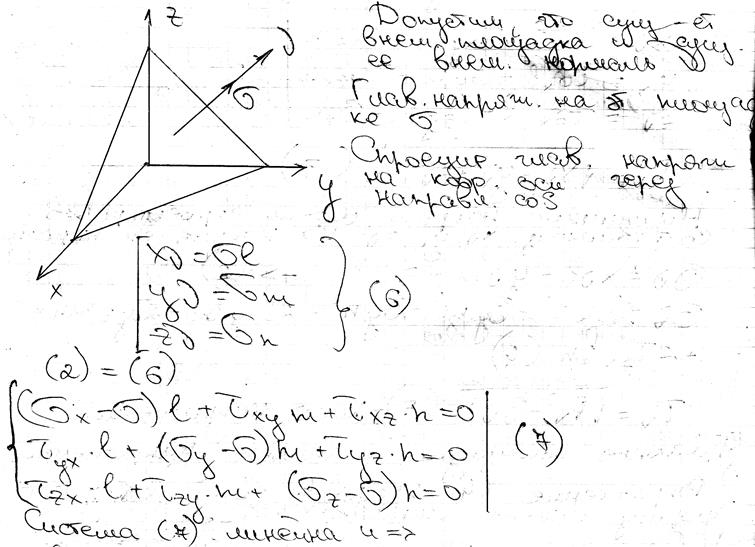 z
ν
σ
y
x
Допустим, что сущ-ет
внеш. площадка и сущ.
ее внеш. нормаль ν
Глав. напряж. на эт площад
ке σ
Спроецир. глав. напряж
на коор. оси через
направл. cos
xν = σl
yν = σm
zν = σn
(6)
(2) = (6)
(σx-σ) l + τxy m + τxz · n = 0
τyx · l + (σy-σ) m + τyz · n = 0
τzx · l + τzy · m + (σz-σ) n = 0
(7)
Система (7) линейна и =>